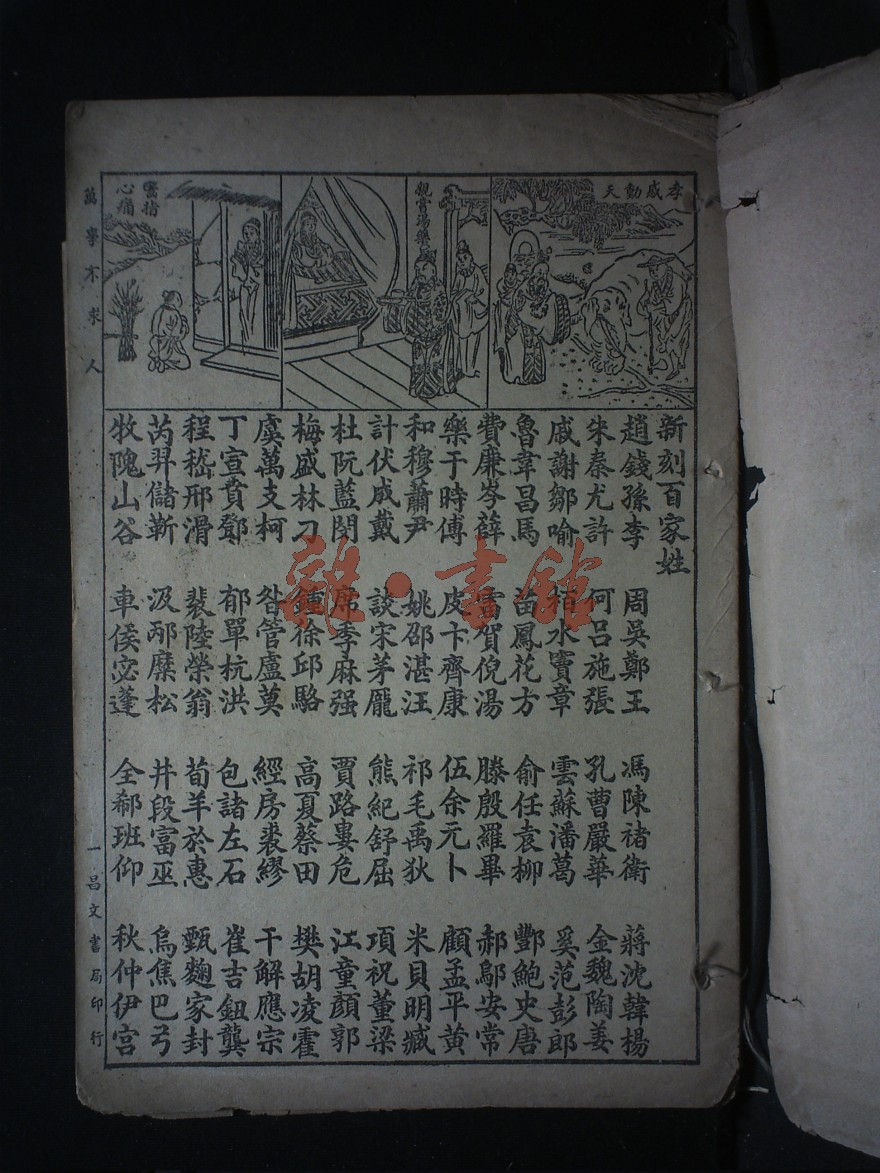 孝感動天
親嘗湯藥
嚙指心痛
新刻百家姓
趙錢孫李 周吳鄭王 馮陳褚衛 蔣沈韓楊
朱秦尤許 何呂施張 孔曹嚴華 金魏陶姜
戚謝鄒喻 柏水竇章 雲蘇潘葛 奚范彭郎
魯韋昌馬 苗鳳花方 俞任袁柳 酆鮑史唐
費廉岑薛 雷賀倪湯 滕殷羅畢 郝鄔安常
樂于時傅 皮卞齊康 伍余元卜 顧孟平黃
和穆蕭尹 姚邵湛汪 祁毛禹狄 米貝明臧
計伏成戴 談宋茅龐 熊紀舒屈 項祝董梁
杜阮藍閔 席季麻强 賈路婁危 江童顏郭
梅盛林刁 鍾徐邱駱 高夏蔡田 樊胡凌霍
虞萬支柯 昝管盧莫 經房裘繆 干解應宗
丁宣賁鄧 郁單杭洪 包諸左石 崔吉鈕龔
程嵇邢滑 裴陸榮翁 荀羊於惠 甄麴家封
芮羿儲靳 汲邴糜松 井段富巫 烏焦巴弓
牧隗山谷 車侯宓蓬 全郗班仰 秋仲伊宮
萬事不求人
一
昌文書局印行
雜·書館